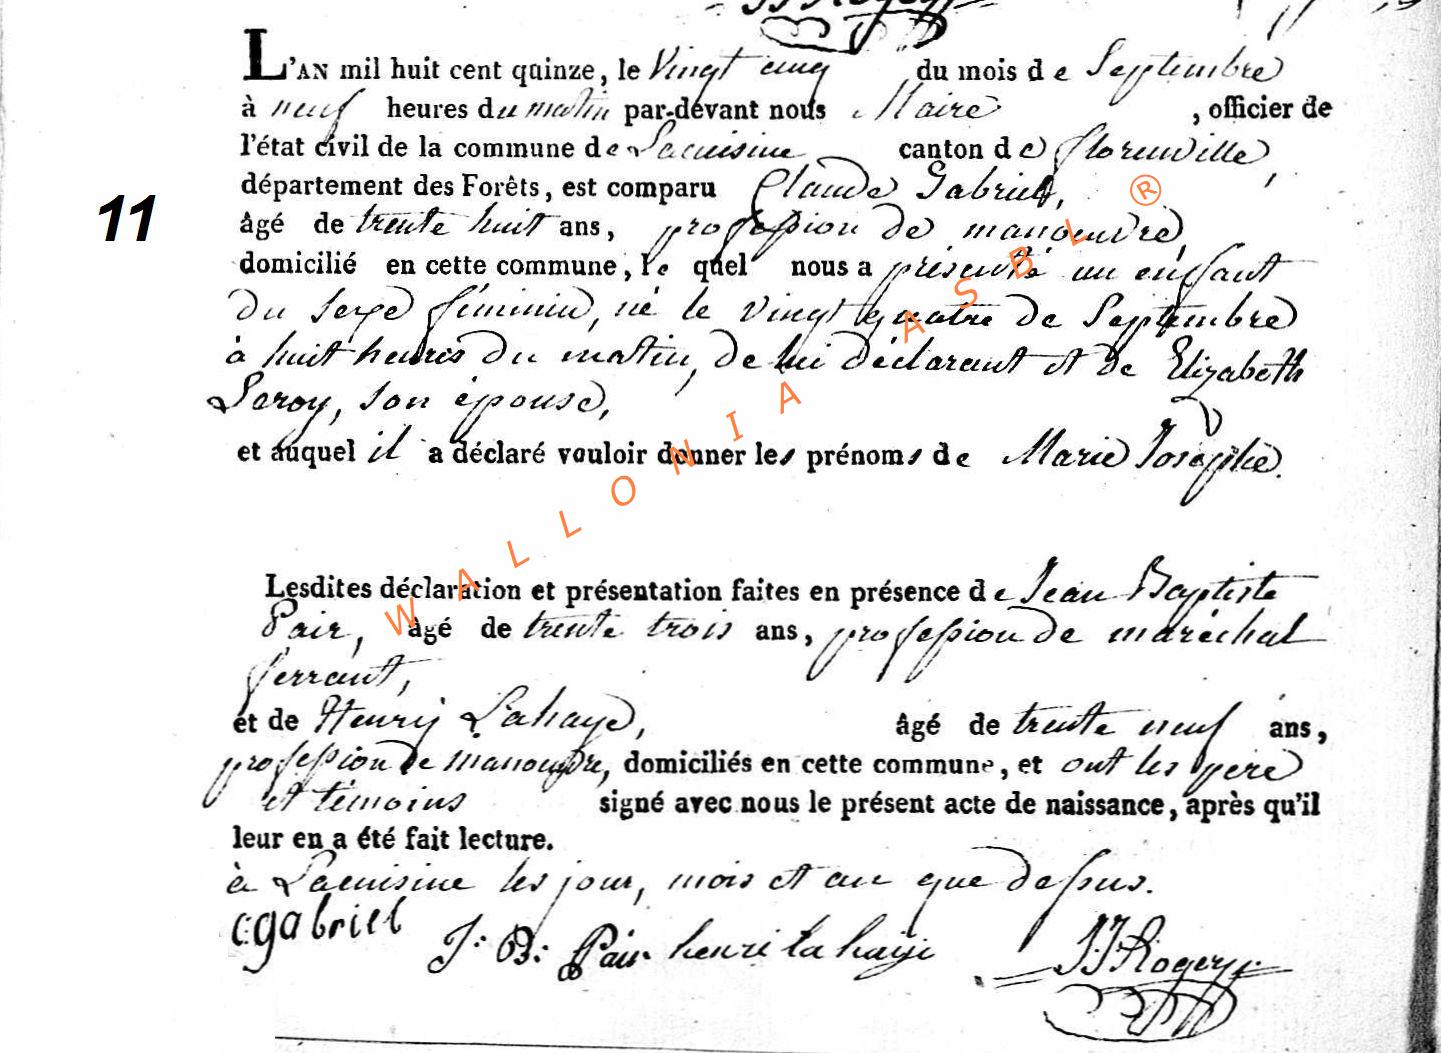 L'AN mil huit cent quinze, le Vingt cinq du mois de Septembre
à neuf heures du matin par-devant nous Maire, officier de
l'état civil de la commune de Lacuisine canton de florenville,
département des Forêts, est comparu Claude Gabriel,
11
âgé de trente huit ans, profession de manoeuvre,
domicilié en cette commune, le quel nous a présenté un enfant
du sexe féminin, né le vingt quatre de Septembre
à huit heures du matin, de lui déclarant et de Elizabeth
Leroy, son épouse,
et auquel il a déclaré vouloir donner les prénoms de Marie Josephe.
WALLONIA ASBL ®
Lesdites déclaration et présentation faites en présence de Jean Baptiste
Pair, âgé de trente trois ans, profession de maréchal
ferrant,
et de Henry Lahaye, âgé de trente neuf ans,
profession de manoeuvre, domiciliés en cette commune, et ont les père
et témoins signé avec nous le présent acte de naissance, après qu'il
leur en a été fait lecture.
à Lacuisine les jour, mois et an que dessus.
C gabriel J. B. Pair henri la haye JJ Rogery